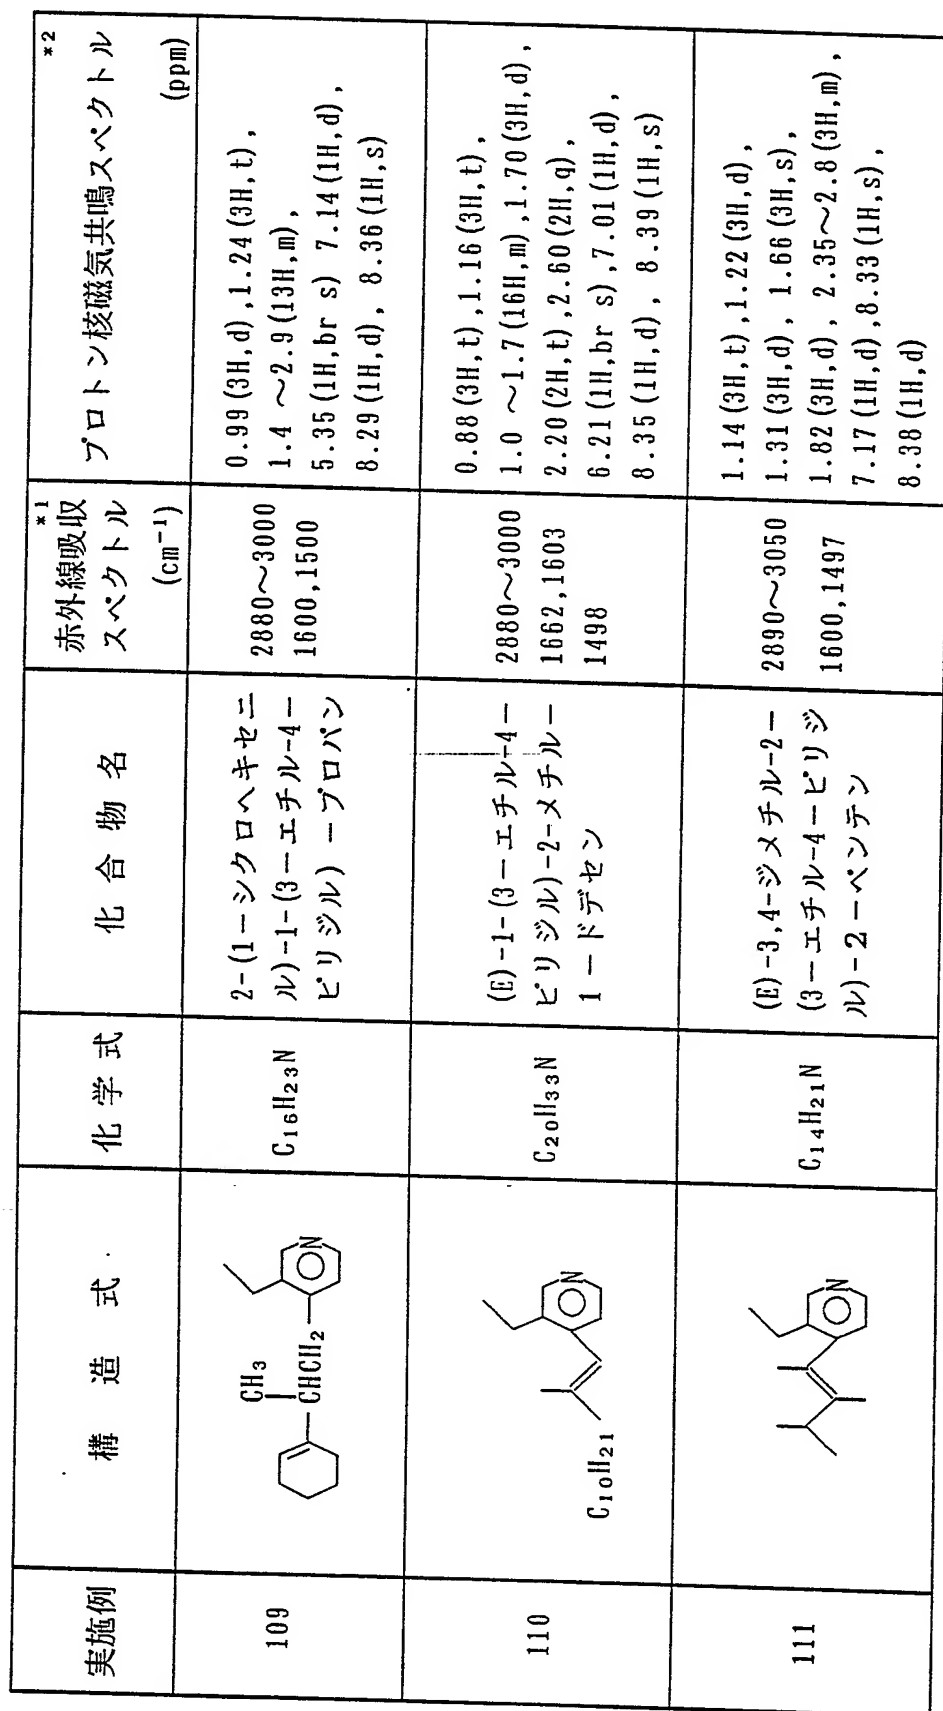 実施例
構造式
化学式
化合物名
赤外線吸収*1
スペクトル
(cm⁻¹)
プロトン核磁気共鳴スペクトル*2
(ppm)
109
CH₃
CHCH₂
N
C₁₆H₂₃N
2-(1ーシクロヘキセニ
ル)-1-(3ーエチル-4ー
ピリジル)ープロパン
2880～3000
1600,1500
0.99(3H,d),1.24(3H,t),
1.4 ～2.9(13H,m),
5.35(1H,br s) 7.14(1H,d),
8.29(1H,d), 8.36(1H,s)
110
C₁₀H₂₁
N
C₂₀H₃₃N
(E)-1-(3ーエチル-4ー
ピリジル)-2-メチルー
1ードデセン
2880～3000
1662,1603
1498
0.88(3H,t),1.16(3H,t),
1.0 ～1.7(16H,m),1.70(3H,d),
2.20(2H,t),2.60(2H,q),
6.21(1H,br s),7.01(1H,d),
8.35(1H,d), 8.39(1H,s)
111
N
C₁₄H₂₁N
(E)-3,4-ジメチル-2-
(3ーエチル-4ーピリジ
ル)-2ーペンテン
2890～3050
1600,1497
1.14(3H,t),1.22(3H,d),
1.31(3H,d), 1.66(3H,s),
1.82(3H,d), 2.35～2.8(3H,m),
7.17(1H,d),8.33(1H,s),
8.38(1H,d)